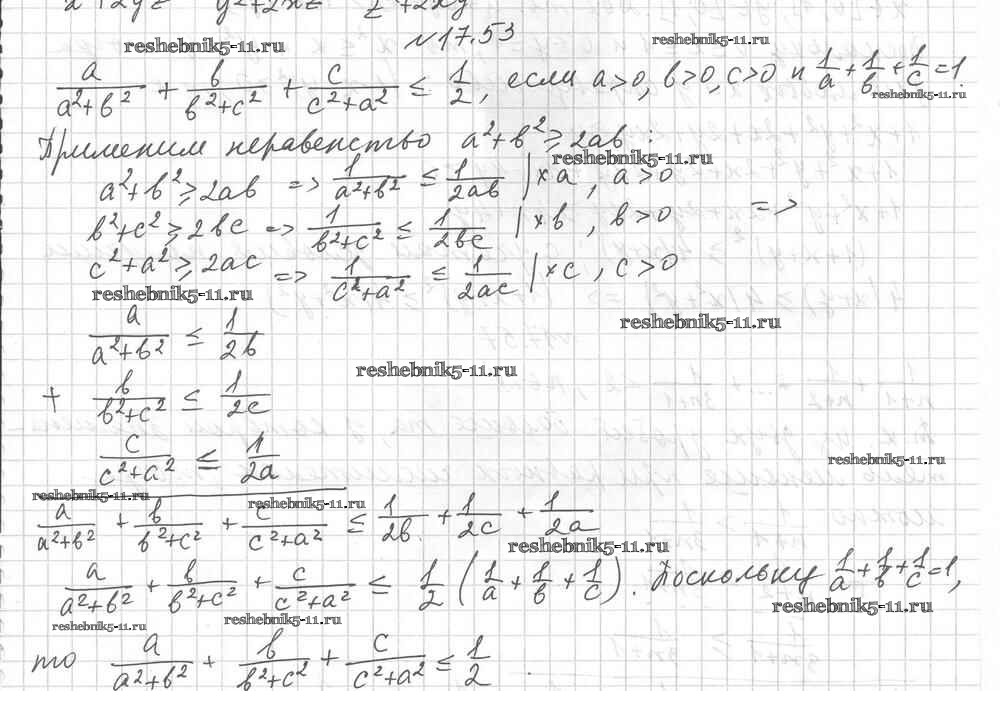 x²+2yz y²+2xz z²+2xy
reshebnik5-11.ru №17.53 reshebnik5-11.ru
a/(a²+b²) + b/(b²+c²) + c/(c²+a²) ≤ 1/2, если a>0, b>0, c>0 и 1/a + 1/b + 1/c = 1.
reshebnik5-11.ru
Применим неравенство a²+b² ≥ 2ab :
reshebnik5-11.ru
a²+b² ≥ 2ab => 1/(a²+b²) ≤ 1/(2ab) | × a, a>0
b²+c² ≥ 2bc => 1/(b²+c²) ≤ 1/(2bc) | × b, b>0 =>
c²+a² ≥ 2ac => 1/(c²+a²) ≤ 1/(2ac) | × c, c>0
reshebnik5-11.ru
reshebnik5-11.ru
a/(a²+b²) ≤ 1/(2b)
reshebnik5-11.ru
+ b/(b²+c²) ≤ 1/(2c)
c/(c²+a²) ≤ 1/(2a)
reshebnik5-11.ru
reshebnik5-11.ru reshebnik5-11.ru
a/(a²+b²) + b/(b²+c²) + c/(c²+a²) ≤ 1/(2b) + 1/(2c) + 1/(2a)
reshebnik5-11.ru
a/(a²+b²) + b/(b²+c²) + c/(c²+a²) ≤ 1/2 (1/a + 1/b + 1/c). Поскольку 1/a + 1/b + 1/c = 1,
reshebnik5-11.ru
reshebnik5-11.ru reshebnik5-11.ru
то a/(a²+b²) + b/(b²+c²) + c/(c²+a²) ≤ 1/2